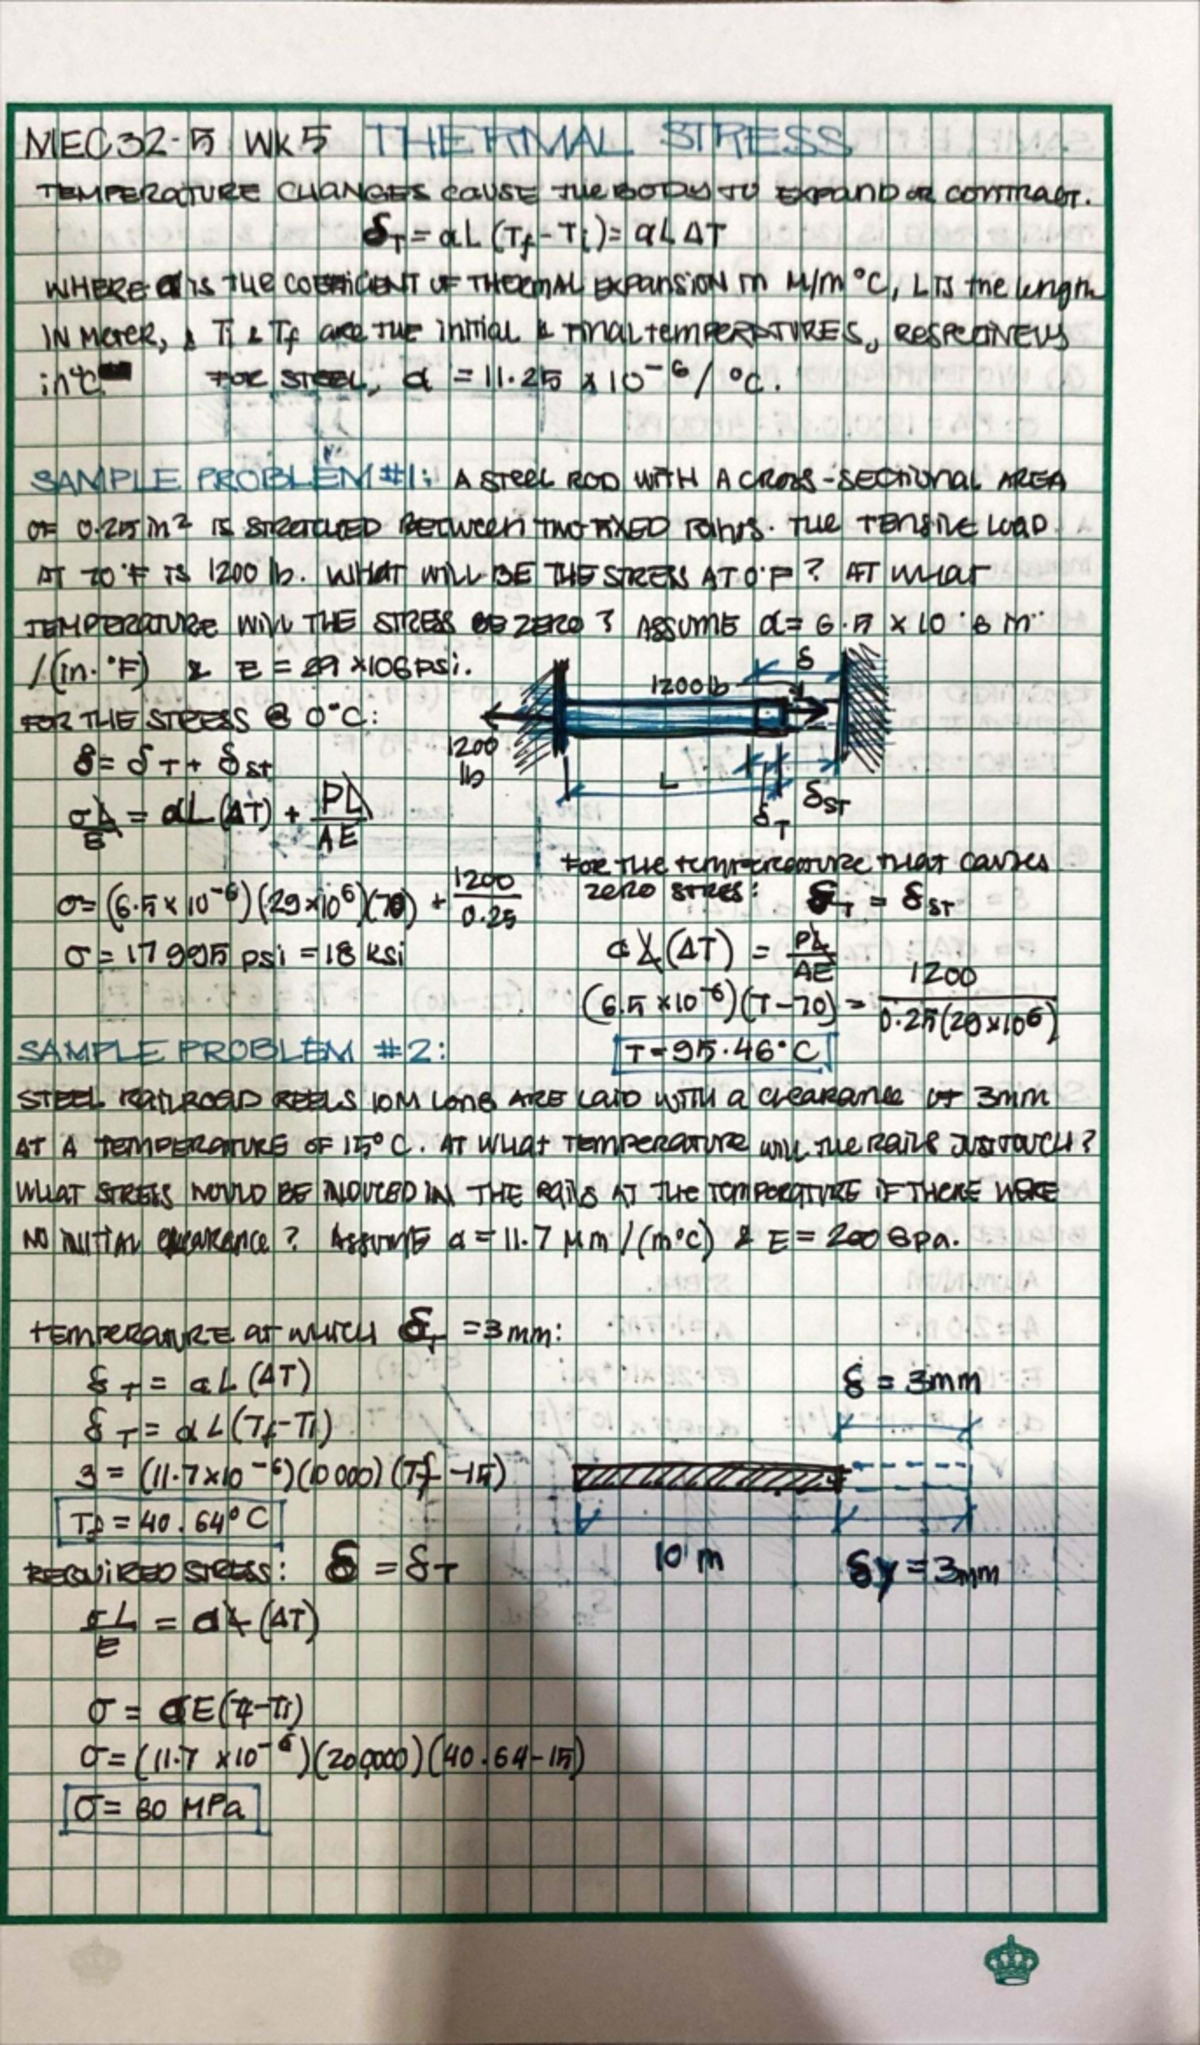 MEC32-5 WK5 THERMAL STRESS
TEMPERATURE CHANGES CAUSE THE BODY TO EXPAND OR CONTRACT.
δT = αL (Tf - Ti) = αLΔT
WHERE α IS THE COEFFICIENT OF THERMAL EXPANSION in M/m °C, L IS the length
IN METER, & Ti & Tf are THE initial & FINAL TEMPERATURES, RESPECTIVELY
in °C FOR STEEL, α = 11.25 × 10⁻⁶ / °C.
SAMPLE PROBLEM #1: A STEEL ROD WITH A CROSS-SECTIONAL AREA
OF 0.25 in² IS STRETCHED BETWEEN TWO FIXED POINTS. THE TENSILE LOAD
AT 70°F IS 1200 lb. WHAT WILL BE THE STRESS AT 0°F? AT WHAT
TEMPERATURE WILL THE STRESS BE ZERO? ASSUME α = 6.5 × 10⁻6 in
/(in.°F) & E = 29 ×106 psi.
δ
1200 lb
FOR THE STRESS @ 0°C:
1200
lb
δ = δT + δST
L
δST
σL/E = αL (ΔT) + PL/AE
δT
FOR THE temperature that causes
zero stres: δT = δST
σ = (6.5 × 10⁻⁶)(29×10⁶)(70) + 1200/0.25
σ = 17 995 psi = 18 ksi
αL (ΔT) = PL/AE
(6.5 ×10⁻⁶)(T-70) = 1200/0.25(29×10⁶)
T = 95.46°C
SAMPLE PROBLEM #2:
STEEL RAILROAD REELS 10M LONG ARE LAID WITH A CLEARANCE OF 3mm
AT A TEMPERATURE OF 15°C. AT WHAT TEMPERATURE will THE RAILS JUST TOUCH?
WHAT STRESS WOULD BE INDUCED IN THE RAILS AT THE TEMPERATURE IF THERE WERE
NO INITIAL clearance? ASSUME α = 11.7 μm/(m°C) & E = 200 GPa.
TEMPERATURE AT WHICH δT = 3mm:
δT = αL (ΔT)
δ = 3mm
δT = αL (Tf-Ti)
3 = (11.7×10⁻⁶)(10 000)(Tf -15)
Tf = 40.64°C
10 m
δy = 3mm
REQUIRED STRESS: δ = δT
σL/E = αL (ΔT)
σ = αE(Tf-Ti)
σ = (11.7 ×10⁻⁶)(200,000)(40.64-15)
σ = 60 MPa